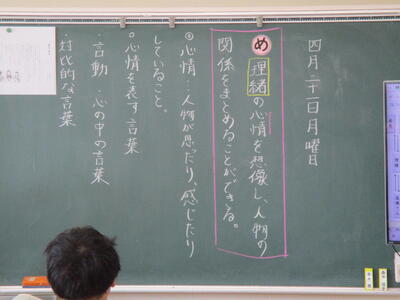 四月二十一日月曜日
め
理緒の心情を想像し、人物の
関係をまとめることができる。
◎心情…人物が思ったり、感じたり
していること。
○心情を表す言葉
・言動 心の中の言葉
・対比的な言葉